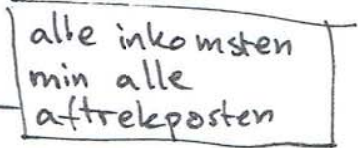 alle inkomsten
min alle
aftrekposten